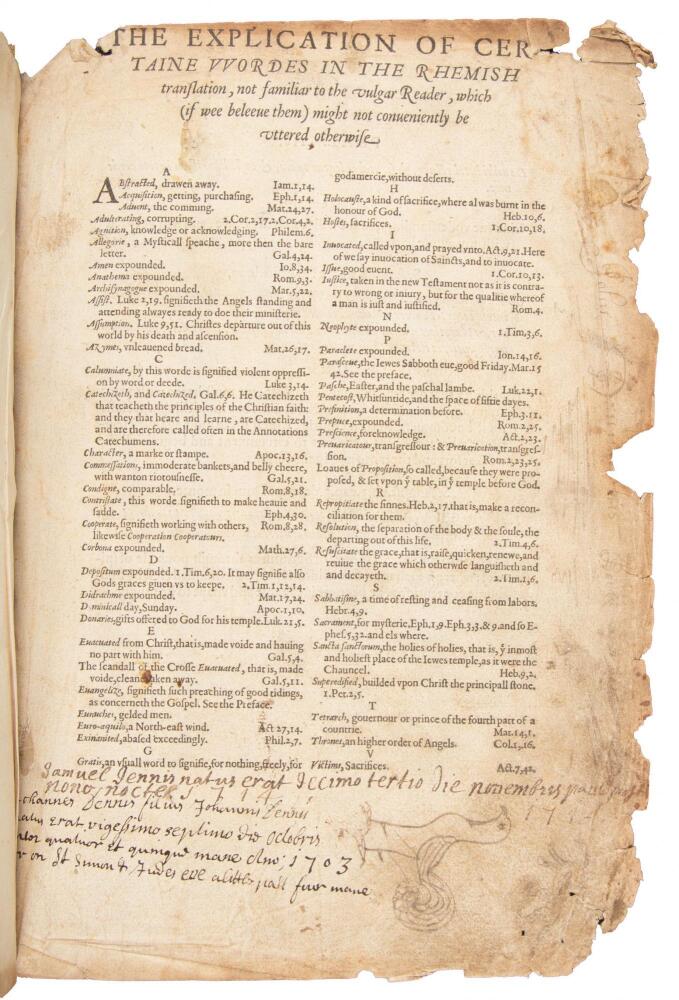 THE EXPLICATION OF CER-
TAINE VVORDES IN THE RHEMISH
tranſlation, not familiar to the vulgar Reader, which
(if wee beleeue them) might not conueniently be
vttered otherwiſe
A
ABſtracted, drawen away. Iam.1,14.
Acquiſition, getting, purchaſing. Eph.1,14.
Aduent, the comming. Mat.24,27.
Adulterating, corrupting. 2.Cor.2,17.2.Cor.4,2.
Agnition, knowledge or acknowledging. Philem.6.
Allegorie, a Myſticall ſpeache, more then the bare
letter. Gal.4,24.
Amen expounded. Io.8,34.
Anathema expounded. Rom.9,3.
Archiſynagogue expounded. Mar.5,22.
Aſſiſt. Luke 2,19. ſignifieth the Angels ſtanding and
attending alwayes ready to doe their miniſterie.
Aſſumption. Luke 9,51. Chriſtes departure out of this
world by his death and aſcenſion.
Azymes, vnleauened bread. Mat.26,17.
C
Calumniate, by this worde is ſignified violent oppreſſi-
on by word or deede. Luke 3,14.
Catechizeth, and Catechized. Gal.6,6. He Catechizeth
that teacheth the principles of the Chriſtian faith:
and they that heare and learne, are Catechized,
and are therefore called often in the Annotations
Catechumens.
Character, a marke or ſtampe. Apoc.13,16.
Commeſſations, immoderate bankets, and belly cheere,
with wanton riotouſneſſe. Gal.5,21.
Condigne, comparable. Rom.8,18.
Contriſtate, this worde ſignifieth to make heauie and
ſadde. Eph.4,30.
Cooperate, ſignifieth working with others, Rom.8,28.
likewiſe Cooperation Cooperatours.
Corbona expounded. Math.27,6.
D
Depoſitum expounded. 1.Tim.6,20. It may ſignifie alſo
Gods graces giuen vs to keepe. 2.Tim.1,12,14.
Didrachme expounded. Mat.17,24.
Dominicall day, Sunday. Apoc.1,10.
Donaries, gifts offered to God for his temple. Luk.21,5.
E
Euacuated from Chriſt, that is, made voide and hauing
no part with him. Gal.5,4.
The ſcandall of the Croſſe Euacuated, that is, made
voide, cleane taken away. Gal.5,11.
Euangelize, ſignifieth ſuch preaching of good tidings,
as concerneth the Goſpel. See the Preface.
Eunuches, gelded men.
Euro-aquilo, a North-eaſt wind. Act 27,14.
Exinanited, abaſed exceedingly. Phil.2,7.
G
Gratis, an vſuall word to ſignifie, for nothing, freely, for
godamercie, without deſerts.
H
Holocauſte, a kind of ſacrifice, where al was burnt in the
honour of God. Heb.10,6.
Hoſtes, ſacrifices. 1.Cor.10,18.
I
Inuocated, called vpon, and prayed vnto. Act.9,21. Here
of we ſay inuocation of Saincts, and to inuocate.
Iſſue, good euent. 1.Cor.10,13.
Iuſtice, taken in the new Teſtament not as it is contra-
ry to wrong or iniury, but for the qualitie whereof
a man is iuſt and iuſtified. Rom.4.
N
Neophyte expounded. 1.Tim.3,6.
P
Paraclete expounded. Ion.14,16.
Paraſceue, the Iewes Sabboth eue, good Friday. Mar.15
42. See the preface.
Paſche, Eaſter, and the paſchal lambe. Luk.22,1.
Pentecoſt, Whitſuntide, and the ſpace of fiftie dayes.
Prefinition, a determination before. Eph.3.11.
Prepuce, expounded. Rom.2,25.
Preſcience, foreknowledge. Act.2,23.
Preuaricatour, tranſgreſſour: & Preuarication, tranſgreſ-
ſion. Rom.2,23,25.
Loaues of Propoſition, ſo called, becauſe they were pro-
poſed, & ſet vpon yͤ table, in yͤ temple before God.
R
Repropitiate the ſinnes. Heb.2,17. that is, make a recon-
ciliation for them.
Reſolution, the ſeparation of the body & the ſoule, the
departing out of this life. 2.Tim.4,6.
Reſuſcitate the grace, that is, raiſe, quicken, renewe, and
reuiue the grace which otherwiſe languiſheth and
and decayeth. 2.Tim.1,6.
S
Sabbatiſme, a time of reſting and ceaſing from labors.
Hebr.4,9.
Sacrament, for myſterie, Eph.1,9. Eph.3,3.& 9. and ſo E-
pheſ.5,32. and els where.
Sancta ſanctorum, the holies of holies, that is, yͤ inmoſt
and holieſt place of the Iewes temple, as it were the
Chauncel. Heb.9,2.
Superedified, builded vpon Chriſt the principall ſtone.
1.Pet.2,5.
T
Tetrarch, gouernour or prince of the fourth part of a
countrie. Mat.14,1.
Thrones, an higher order of Angels. Col.1,16.
V
Victims, Sacrifices. Act.7,42.
Samuel Jennis natus erat tertio die nouembris
nono nocte
Johannes Dennis filius Johannis Dennis
natus erat vigeſſimo ſeptimo die Octobris
quatuor et quinque mane Ano: 1703
or on St Simon & Judes eve a little paſt four mane